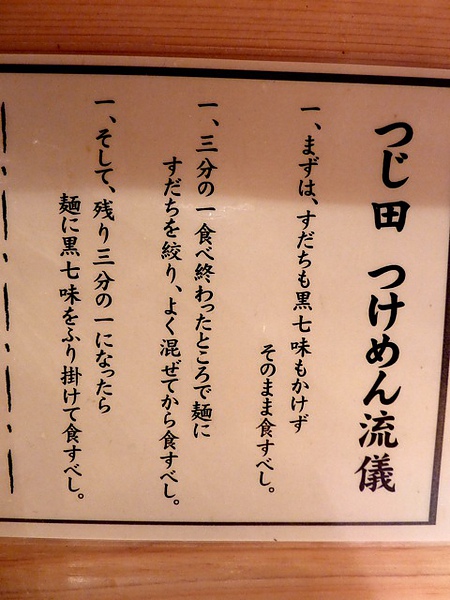 つじ田 つけめん流儀
一、まずは、すだちも黒七味もかけず
そのまま食すべし。
一、三分の一食べ終わったところで麺に
すだちを絞り、よく混ぜてから食すべし。
一、そして、残り三分の一になったら
麺に黒七味をふり掛けて食すべし。